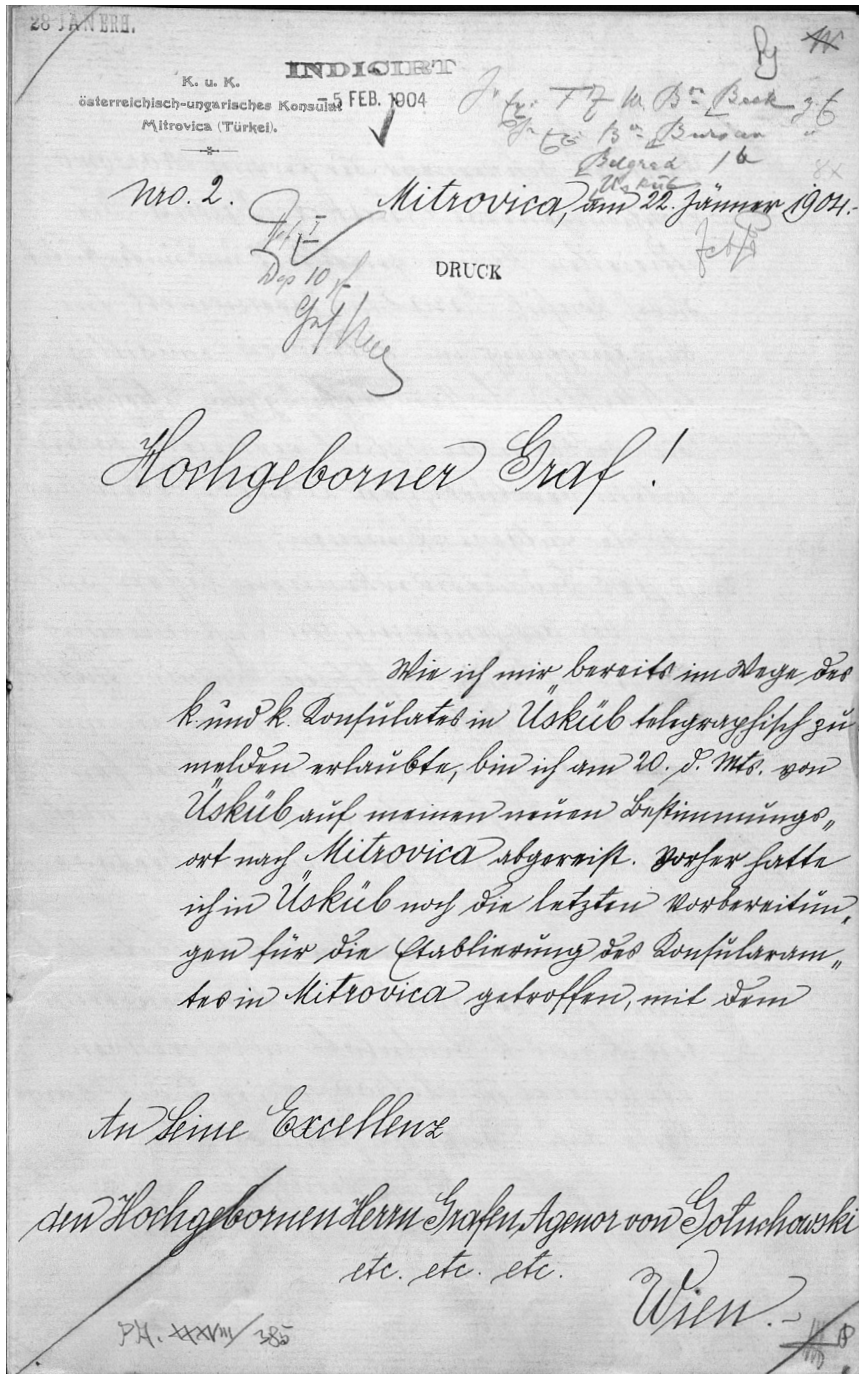 28 JAN
INDICIRT
K. u. K.
österreichisch-ungarisches Konsulat
- 5 FEB. 1904
Mitrovica (Türkei).
Bn Beck
Bn Burian
Belgrad
Üsküb
Nro. 2.
Mitrovica, am 22. Jänner 1904.-
Ref. I
Dep 10
DRUCK
Hochgeborner Graf!
Wie ich mir bereits im Wege des
k. und k. Konsulates in Üsküb telegraphisch zu
melden erlaubte, bin ich am 20. d. Mts. von
Üsküb auf meinen neuen Bestimmungs„
ort nach Mitrovica abgereist. Vorher hatte
ich in Üsküb noch die letzten Vorbereitun„
gen für die Etablierung des Konsularam„
tes in Mitrovica getroffen, mit dem
An Seine Excellenz
den Hochgebornen Herrn Grafen Agenor von Gołuchowski
etc. etc. etc.
Wien.-
PA. XXXVIII/385